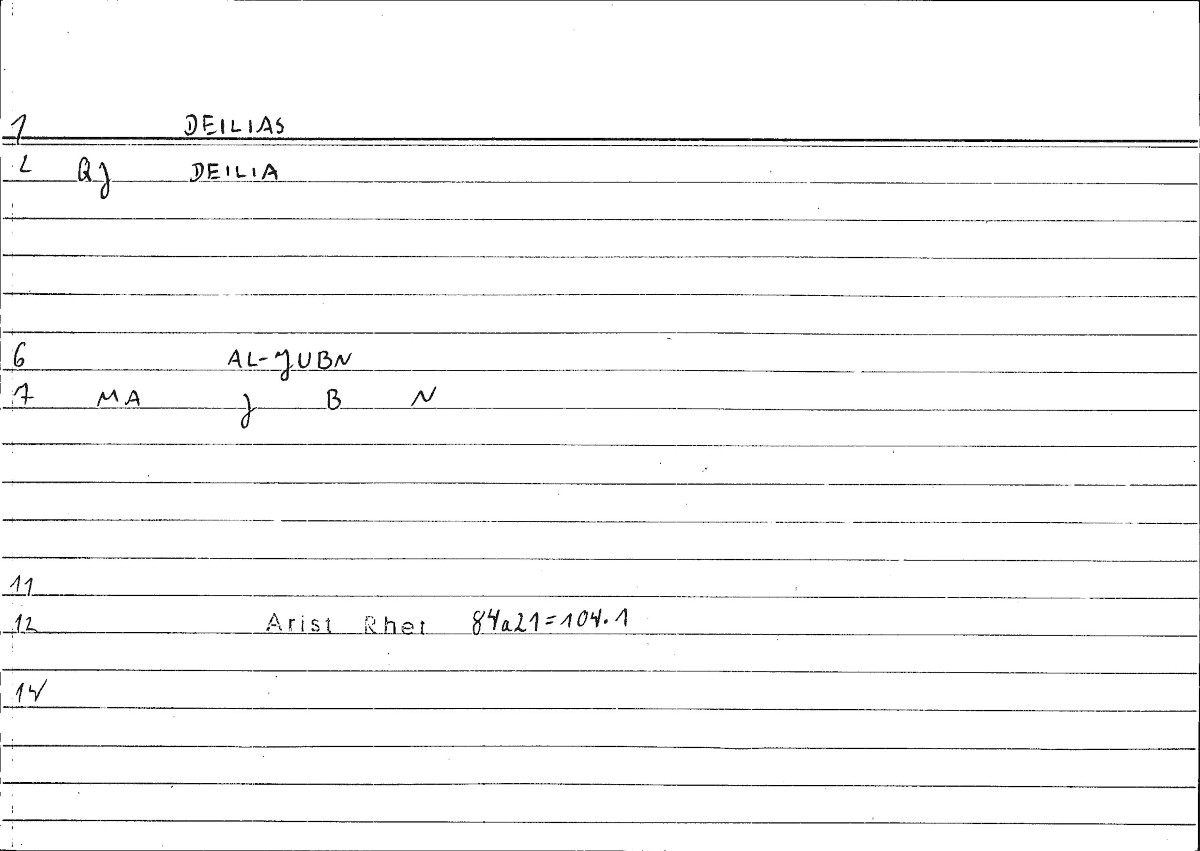 1 DEILIAS
2 QJ DEILIA
6 AL-JUBN
7 MA J B N
11
12 Arist Rhet 84a21=104.1
14